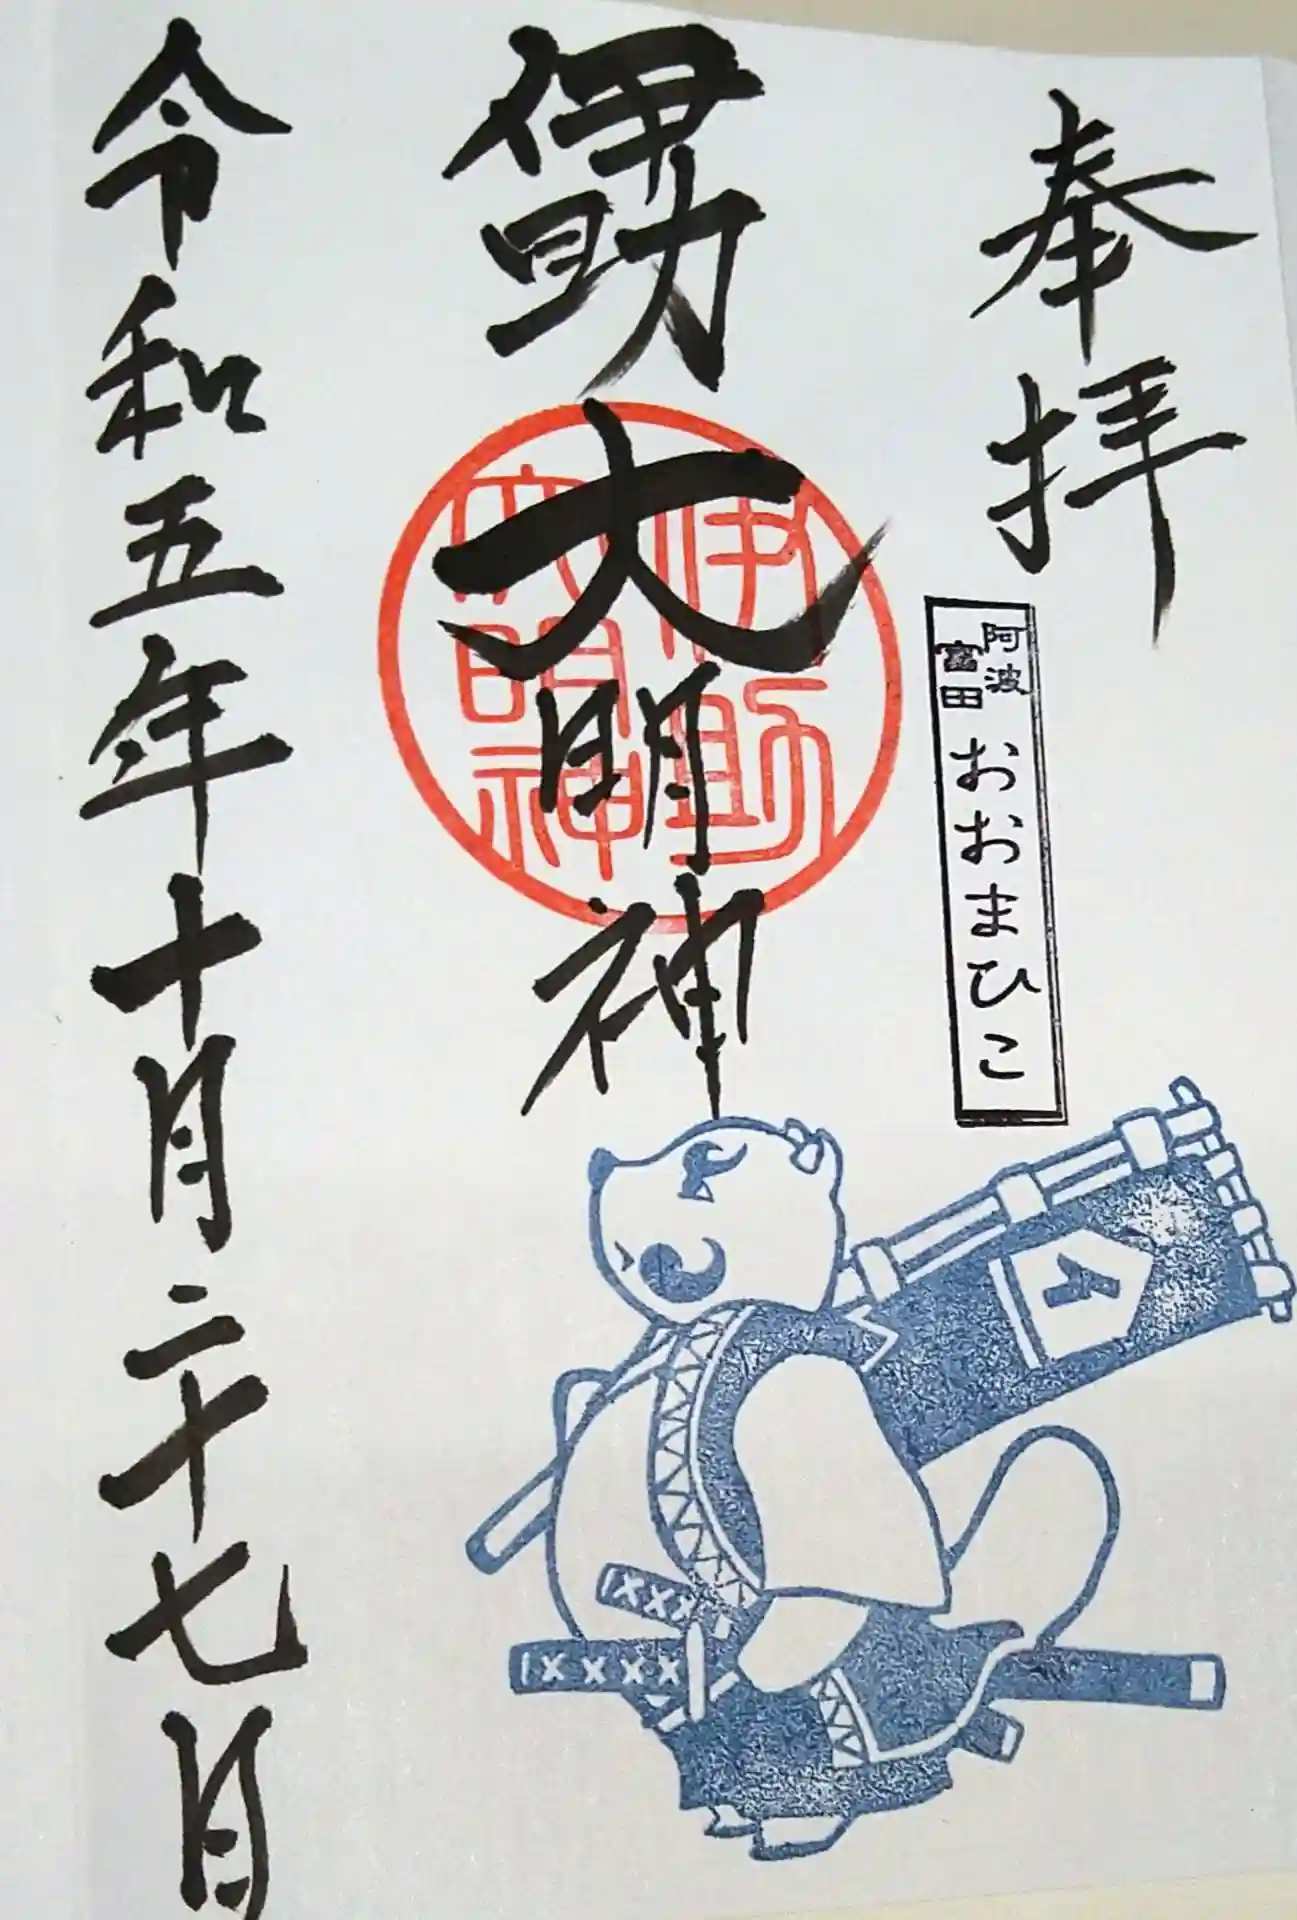 奉拝
阿波
富田
おおまひこ
伊助大明神
伊助
大明神
令和五年十月二十七日
イ